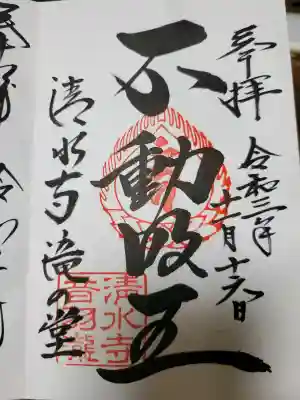 奉拝
令和三年
十一月十六日
不動明王
清水寺
音羽瀧
清水寺 滝の堂